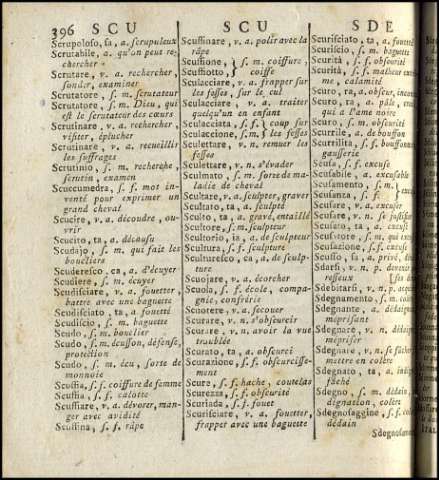 396 SCU
Scrupoloso, sa, a. scrupuleux
Scrutabile, a. qu'on peut re-
chercher
Scrutare, v. a. rechercher,
sonder, examiner
Scrutatore, s. m. scrutateur
Scrutatore, s. m. Dieu, qui
est le scrutateur des cœurs
Scrutinare, v. a. rechercher,
visiter, éplucher
Scrutinare, v. a. recueillir
les suffrages
Scrutinio, s. m. recherche
scrutin, examen
Scuccumedra, s. f. mot in-
venté pour exprimer un
grand cheval
Scucire, v. a. découdre, ou-
vrir
Scucito, ta, a. décousu
Scudajo, s. m. qui fait les
boucliers
Scuderesco, ca, a. d'écuyer
Scudiere, s. m. écuyer
Scudisciare, v. a. fouetter,
battre avec une baguette
Scudisciato, ta, a. fouetté
Scudiscio, s. m. baguette
Scudo, s. m. bouclier
Scudo, s. m. écusson, défense,
protection
Scudo, s. m. écu, sorte de
monnoie
Scuffia, s. f. coiffure de femme
Scuffia, s. f. calotte
Scuffiare, v. a. dévorer, man-
ger avec avidité
Scuffina, s. f. râpe
SCU
Scuffinare, v. a. polir avec la
râpe
Scuffione, } s. m. coiffure,
Scuffiotto, } coiffe
Sculacciare, v. a. frapper sur
les fesses, sur le cul
Sculacciare, v. a. traiter
quelqu'un en enfant
Sculacciata, s. f. } coup sur
Sculaccione, s. m. } les fesses
Sculettare, v. n. remuer les
fesses
Sculettare, v. n. s'évader
Sculmato, s. m. sorte de ma-
ladie de cheval
Scultare, v. a. sculpter, graver
Scultato, ta, a. sculpté
Sculto, ta, a. gravé, entaillé
Scultore, s. m. sculpteur
Scultorio, ia, a. de sculpteur
Scultura, s. f. sculpture
Sculturesco, ca, a. de sculp-
ture
Scuojare, v. a. écorcher
Scuola, s. f. école, compa-
gnie, confrérie
Scuotere, v. a. secouer
Scurare, v. n. s'obscurcir
Scurare, v. n. avoir la vue
troublée
Scurato, ta, a. obscurci
Scurazione, s. f. obscurcisse-
ment
Scure, s. f. hache, coutelas
Scurezza, s. f. obscurité
Scuriada, s. f. fouet
Scurisciare, v. a. fouetter,
frapper avec une baguette
SDE
Scurisciato, ta, a. fouetté
Scuriscio, s. m. baguette
Scurità, s. f. obscurité
Scurità, s. f. malheur
me, calamité
Scuro, ra, a. obscur,
Scuro, ta, a. pâle,
qui a l'ame noire
Scuro, s. m. obscurité
Scurrile, a. de bouffon
Scurrilità, s. f. bouffonn
gausserie
Scusa, s. f. excuse
Scusabile, a. excusable
Scusamento, s. m. }
Scusanza, s. f. }
Scusare, v. a. excuser
Scusare, v. n. se justifier
Scusato, ta, a. excusé
Scusatore, s. m. qui
Scusazione, s. f. excuse
Scusso, sa, a. privé,
Sdarsi, v. n. p.
resseux
Sdebitarsi, v. n. p.
Sdegnamento, s. m.
Sdegnante, a.
méprisant
Sdegnare, v. n. dédaign
mépriser
Sdegnare, v. n. se fâcher
mettre en colère
Sdegnato, ta, a.
fâché
Sdegno, s. m. dédain,
dignation, colère
Sdegnosaggine, s. f.
dédain